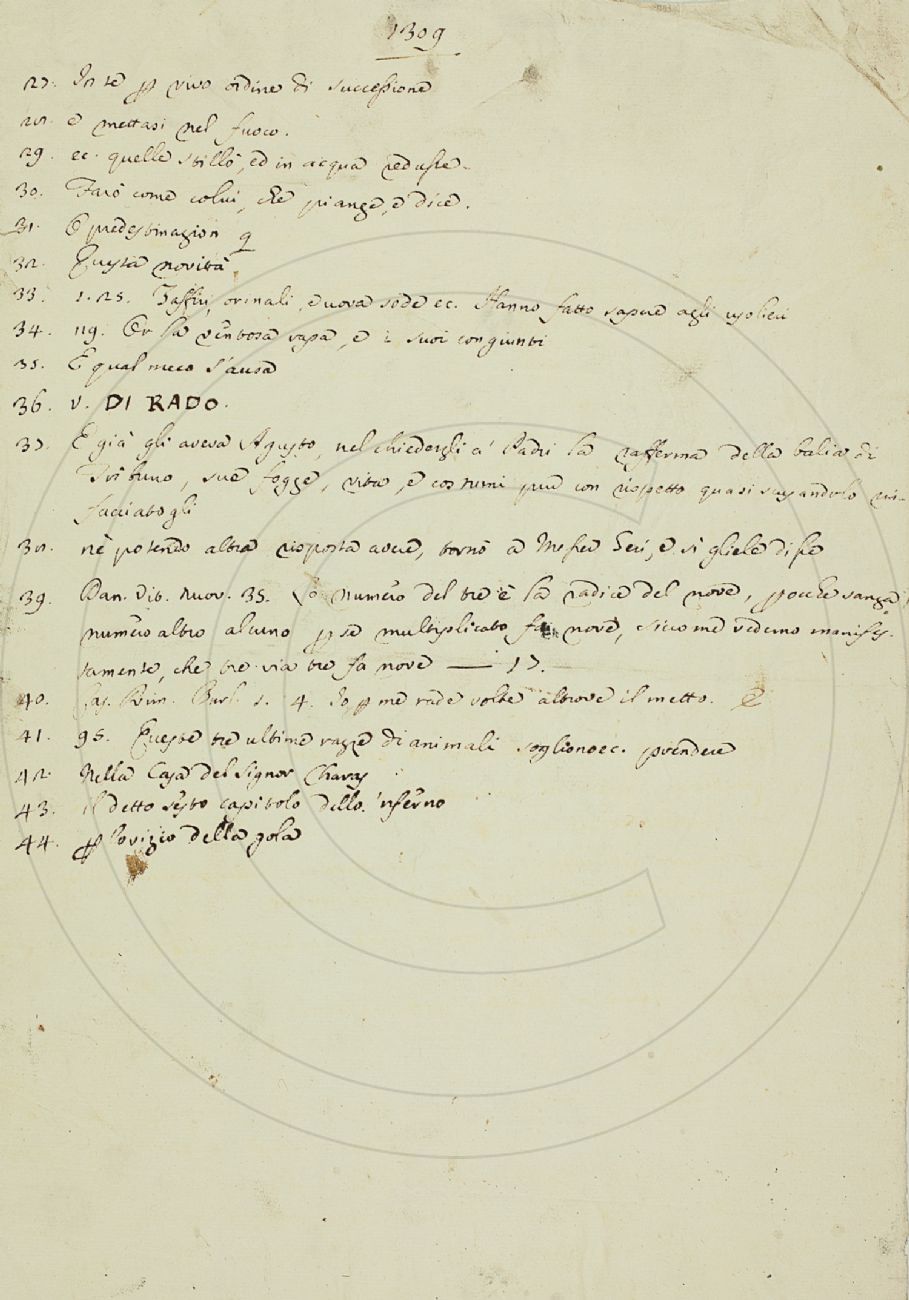 1309
27. In te p vivo ordine di successione
28. e mettasi nel fuoco.
29. ec. quelle stillò, ed in acqua redusse.
30. Farò come colui, che piange, e dice.
31. O predestinazion q
32. Questa novità
33. 1.25. Zaffiri, orinali, e uova sode ec. Hanno fatto sapere agli usolieri
34. 119. Or la ventosa rapa, e i suoi congiunti
35. E qual meco s'ausa
36. v. DI RADO.
37. E già gli aveva Agusto, nel chiedergli a' Padri la rafferma della balia di
Tribuno, sue fogge, vita, e costumi pure con rispetto quasi scusandolo rin-
facciatogli
38. nè potendo altra risposta avere, tornò a Messer Geri, e sì gliele disse
39. Dan. Vit. Nuov. 35. Lo numero del tre è la radice del nove, perocchè sanza
numero altro alcuno p se multiplicato fa nove, siccome vedemo manifes-
tamente, che tre via tre fa nove — 17.
40. Cas. Rim. Burl. 1. 4. Io p me rade volte altrove il metto. E
41. 95. Queste tre ultime razze di animali sogliono ec. prendere
42. Nella Casa del Signor Charas
43. il detto sesto capitolo dello 'nferno
44. p lo vizio della gola